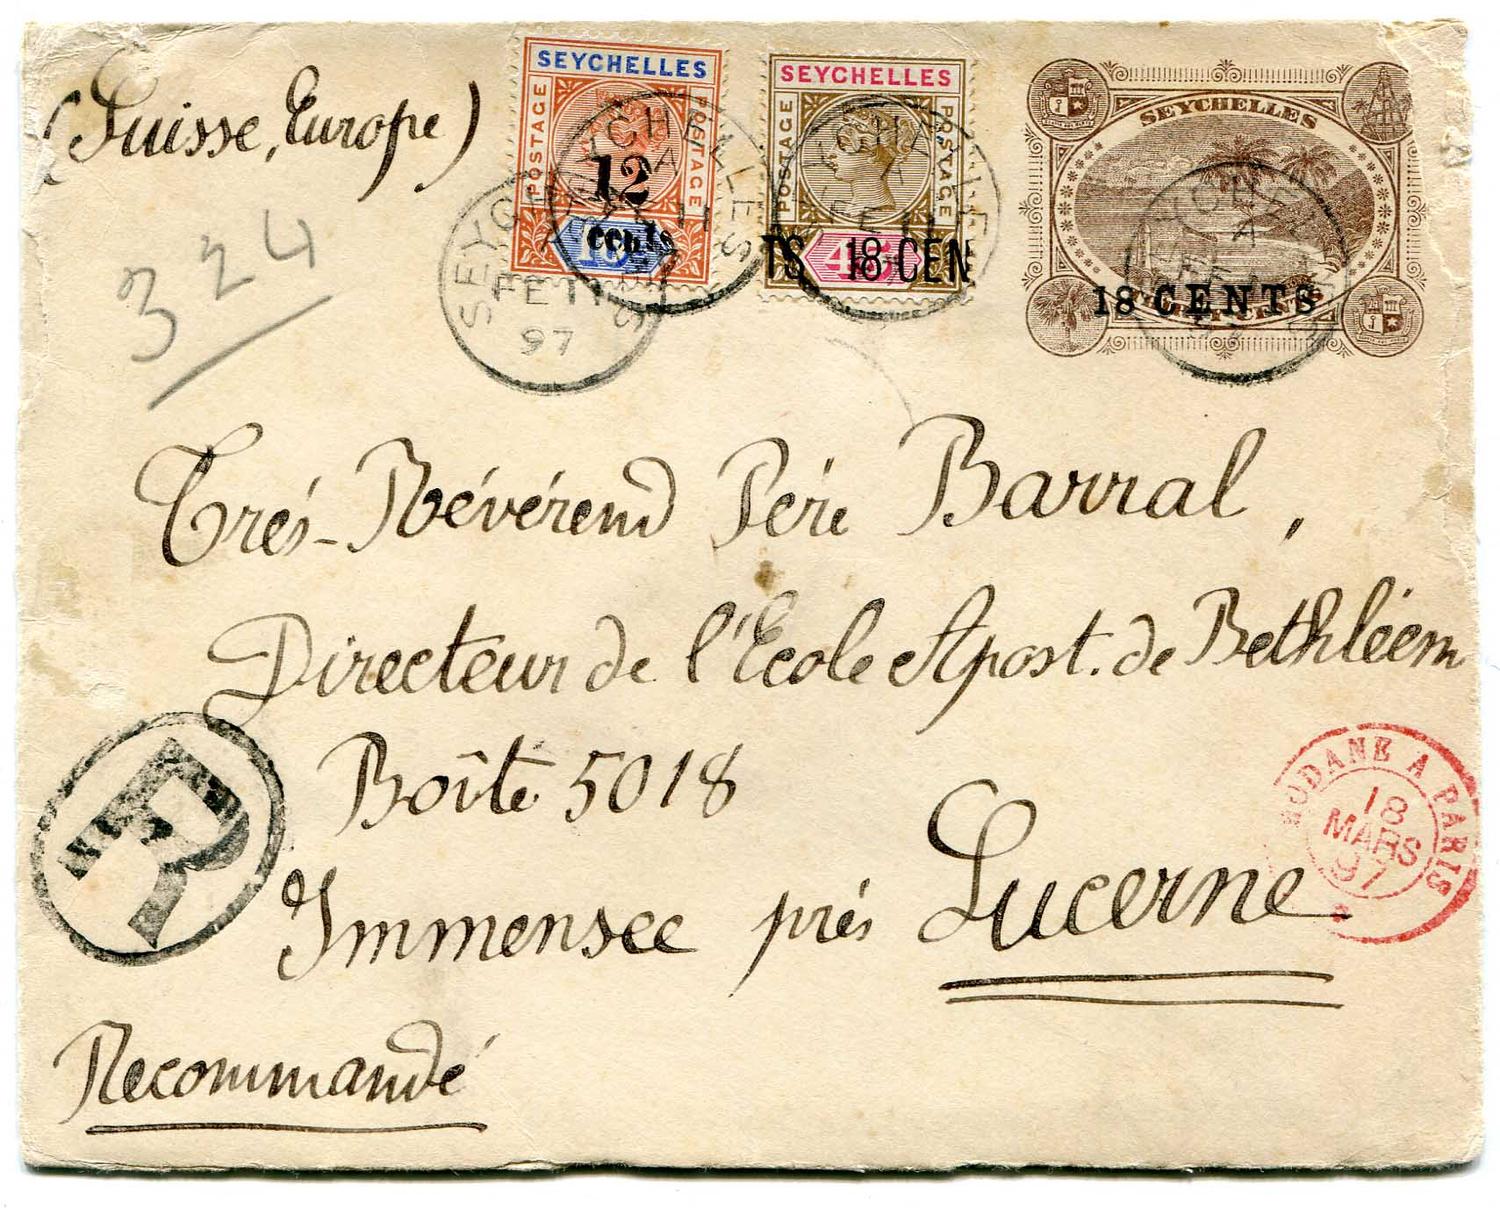 (Suisse, Europe)
324
SEYCHELLES
POSTAGE
POSTAGE
12
cents
SEYCHELLES
POSTAGE
POSTAGE
TS 18 CEN
SEYCHELLES
18 CENTS
SEYCHELLES
FE 11
97
SEYCHELLES
A
FE 11
SEYCHELLES
A
Trés-Révérend Pére Barral,
Directeur de l'Ecole Apost. de Bethléem
Boîte 5018
Immensee prés Lucerne
Recommandé
R
MODANE A PARIS
18
MARS
97